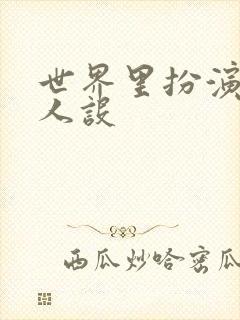 世界里扮演
人设
西瓜炒哈密瓜